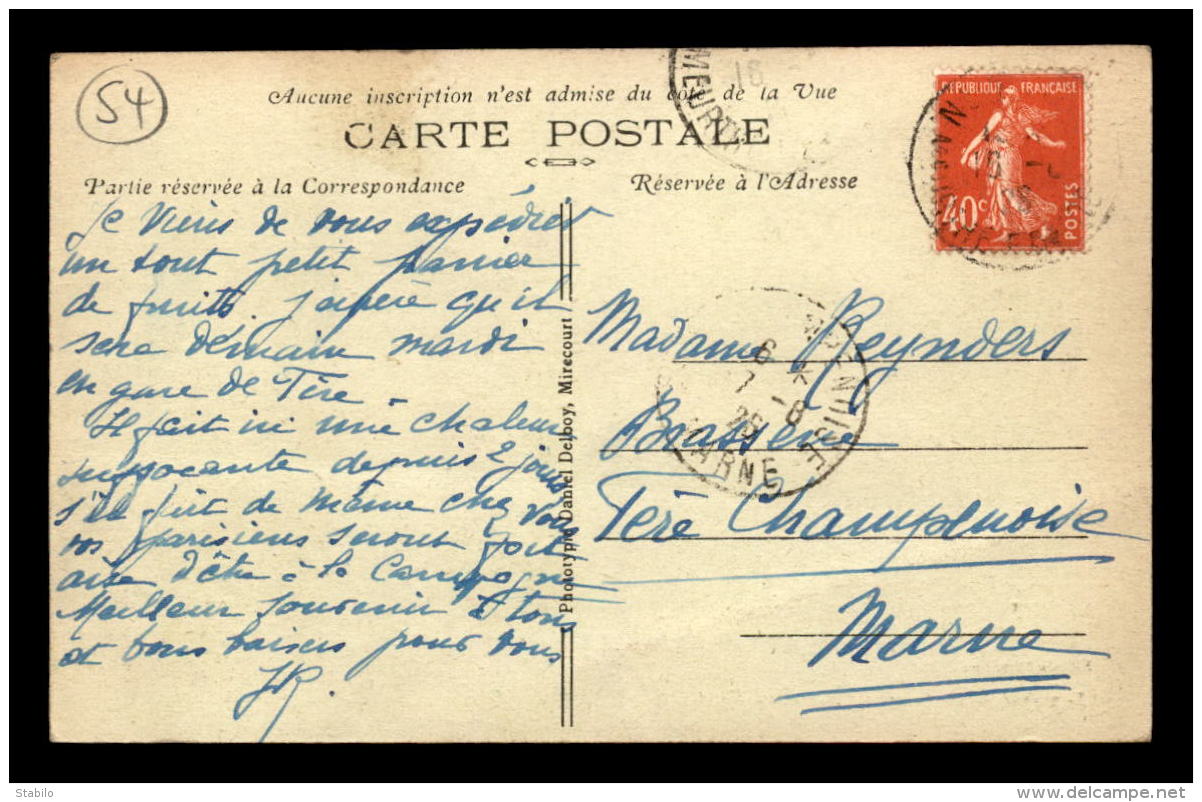 54
Aucune inscription n'est admise du côté de la Vue
CARTE POSTALE
Partie réservée à la Correspondance
Réservée à l'Adresse
RÉPUBLIQUE FRANÇAISE
40c
POSTES
MEURTH
16
Je viens de vous expédier
un tout petit panier
de fruits. j'espère qu'il
sera demain mardi
en gare de Fère.
Il fait ici une chaleur
suffocante depuis 2 jours
s'il fait de même chez vous
vos parisiens seront fort
aise d'être à la Campagne
Meilleur souvenir à tous
et bons baisers pour vous
JR.
Phototypie Daniel Delboy, Mirecourt
6 *
7 - 8
26
MARNE
Madame Reynders
Brasserie
Fère Champenoise
Marne
Stabilo
www.delcampe.net